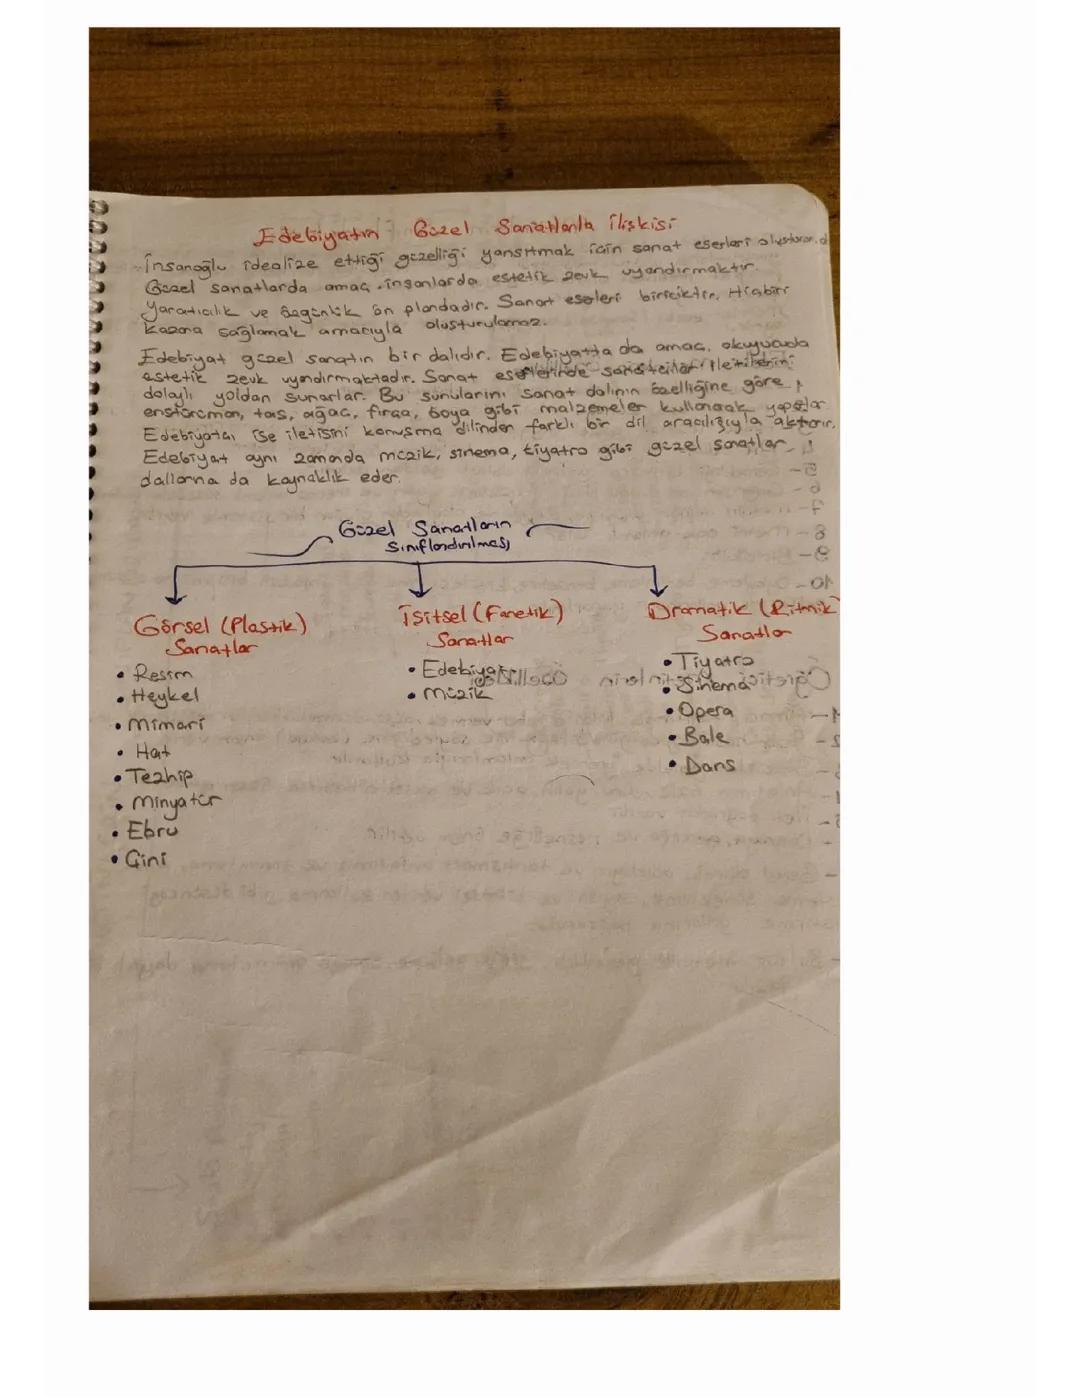 Edebiyatın Güzel Sanatlarla İlişkisi
İnsanoğlu idealize ettiği güzelliği yansıtmak için sanat eserleri oluşturur.
Güzel sanatlarda amaç insanlarda estetik zevk uyandırmaktır.
Yaratıcılık ve özgünlük ön plandadır. Sanat eserleri biriciktir. Hiçbiri
kazanç sağlamak amacıyla oluşturulamaz.
Edebiyat güzel sanatın bir dalıdır. Edebiyatta da amaç, okuyucuda
estetik zevk uyandırmaktadır. Sanat eserlerinde sanatçılar iletilerini
dolaylı yoldan sunarlar. Bu sunularını sanat dalının özelliğine göre
enstürman, taş, ağaç, fırça, boya gibi malzemeler kullanarak yaparlar.
Edebiyatçı ise iletisini konuşma dilinden farklı bir dil aracılığıyla aktarır.
Edebiyat aynı zamanda müzik, sinema, tiyatro gibi güzel sanatlar
dallarına da kaynaklık eder.
Güzel Sanatların
Sınıflandırılması
Görsel (Plastik)
Sanatlar
• Resim
• Heykel
• Mimari
• Hat
• Tezhip
• Minyatür
• Ebru
• Çini
İşitsel (Fonetik)
Sanatlar
• Edebiyat
• Müzik
Dramatik (Ritmik)
Sanatlar
• Tiyatro
• Sinema
• Opera
• Bale
• Dans